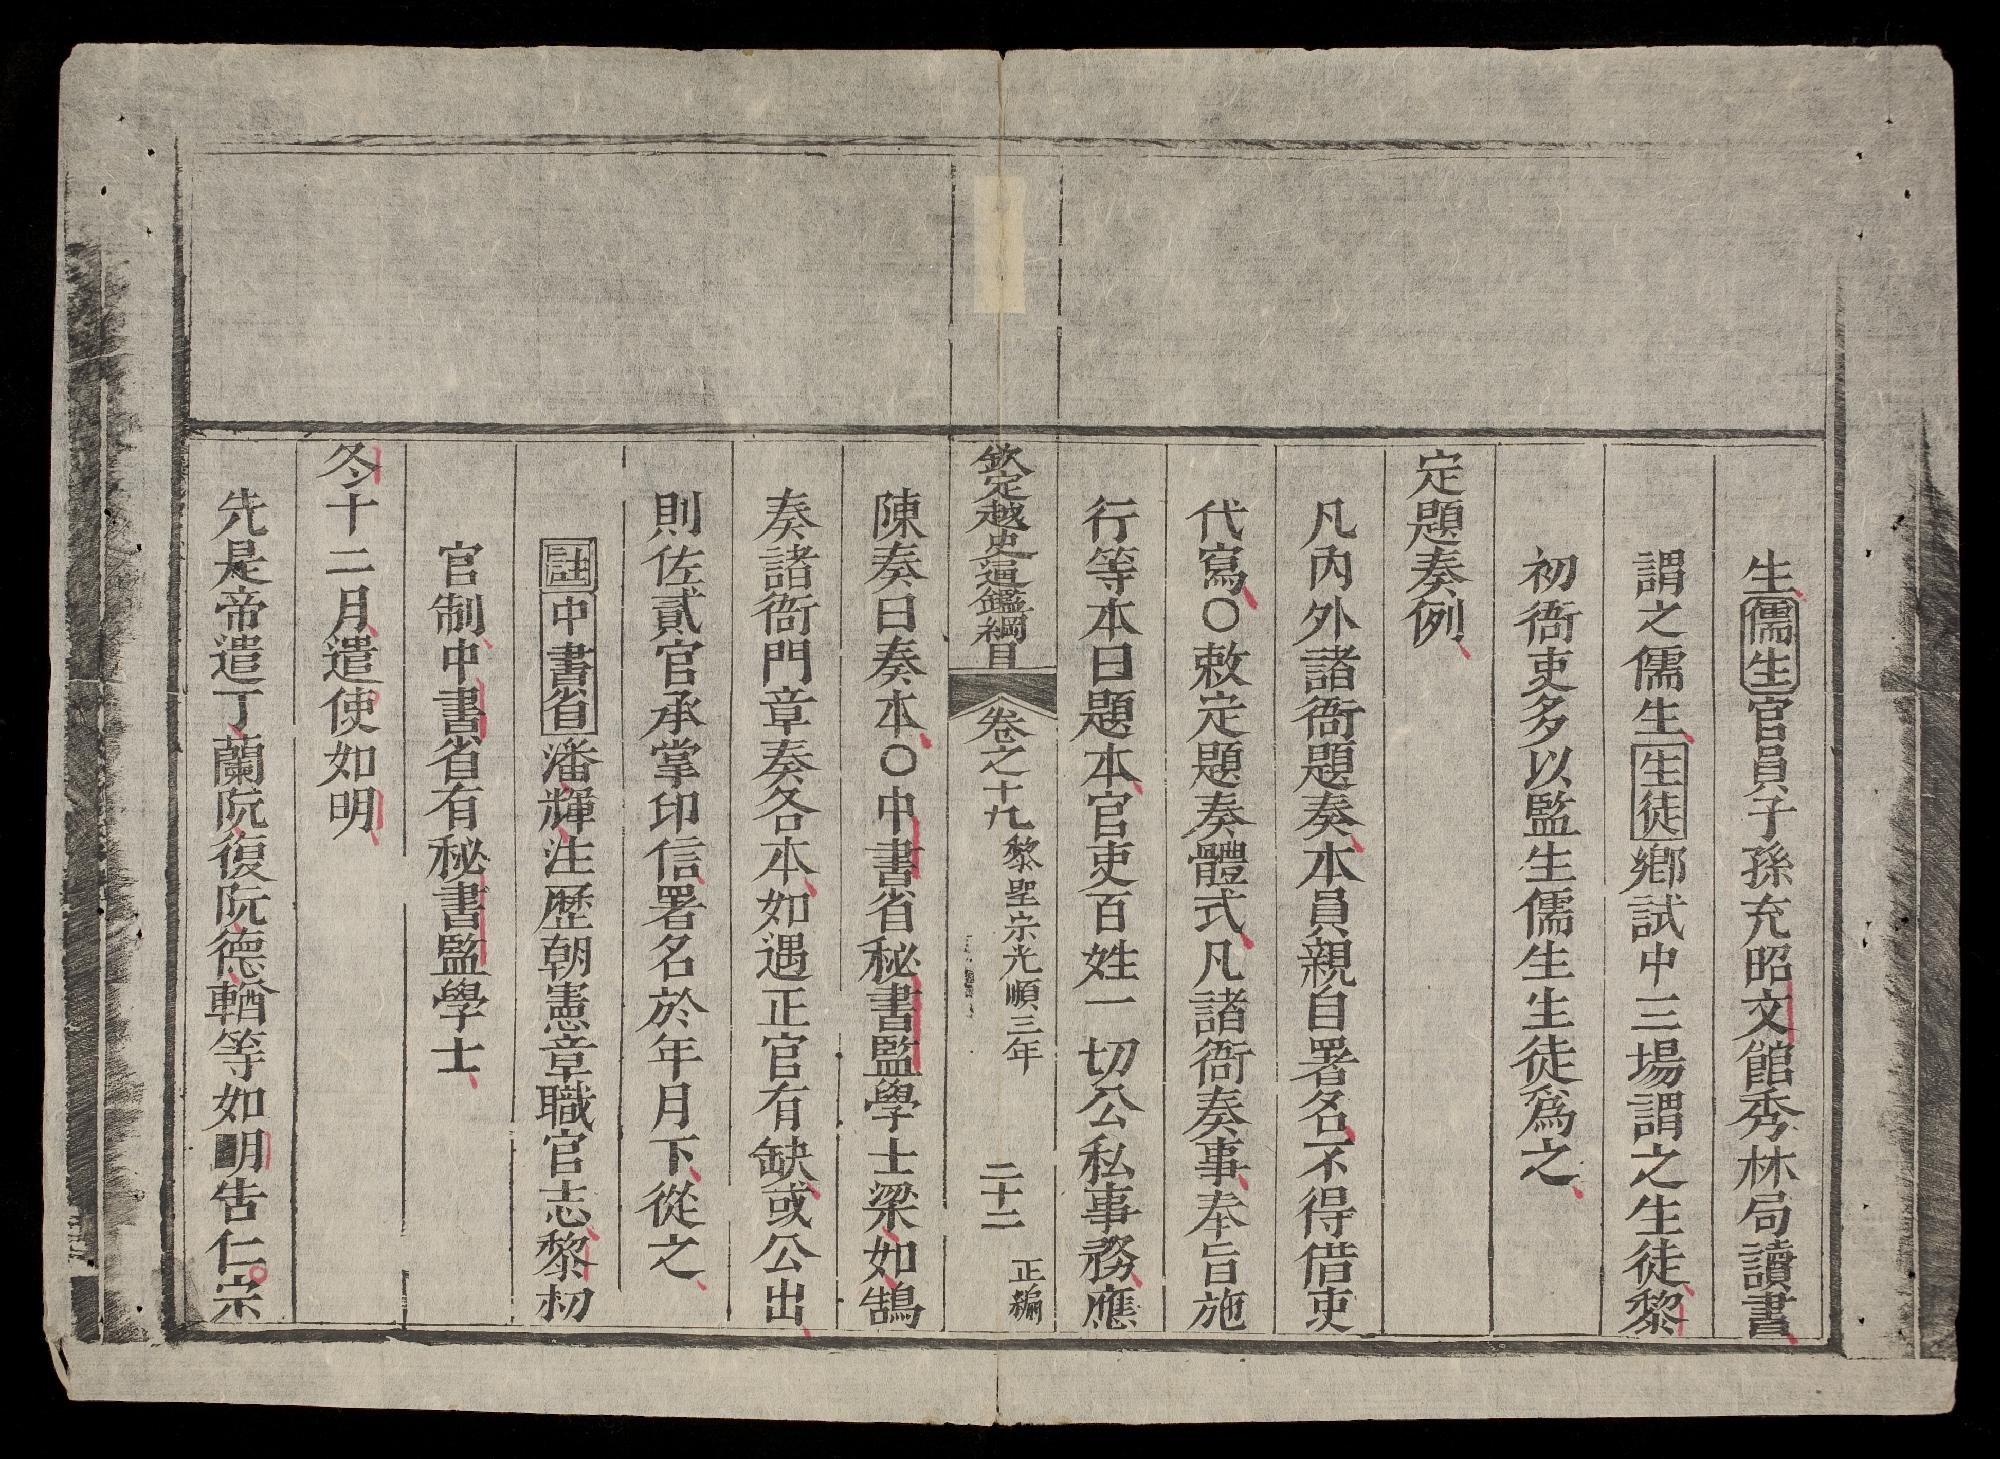 生儒生官員子孫充昭文館秀林局讀書
謂之儒生生徒鄉試中三場謂之生徒黎
初衙吏多以監生儒生生徒爲之
定題奏例
凡內外諸衙題奏本員親自署名不得借吏
代寫○敕定題奏體式凡諸衙奏事奉旨施
行等本曰題本官吏百姓一切公私事務應
欽定越史通鑑綱目 卷之十九 黎聖宗光順三年 二十二 正編
陳奏曰奏本○中書省秘書監學士梁如鵠
奏諸衙門章奏各本如遇正官有缺或公出
則佐貳官承掌印信署名於年月下從之
註中書省潘輝注歷朝憲章職官志黎初
官制中書省有秘書監學士
冬十二月遣使如明
先是帝遣丁蘭阮復阮德輶等如明告仁宗